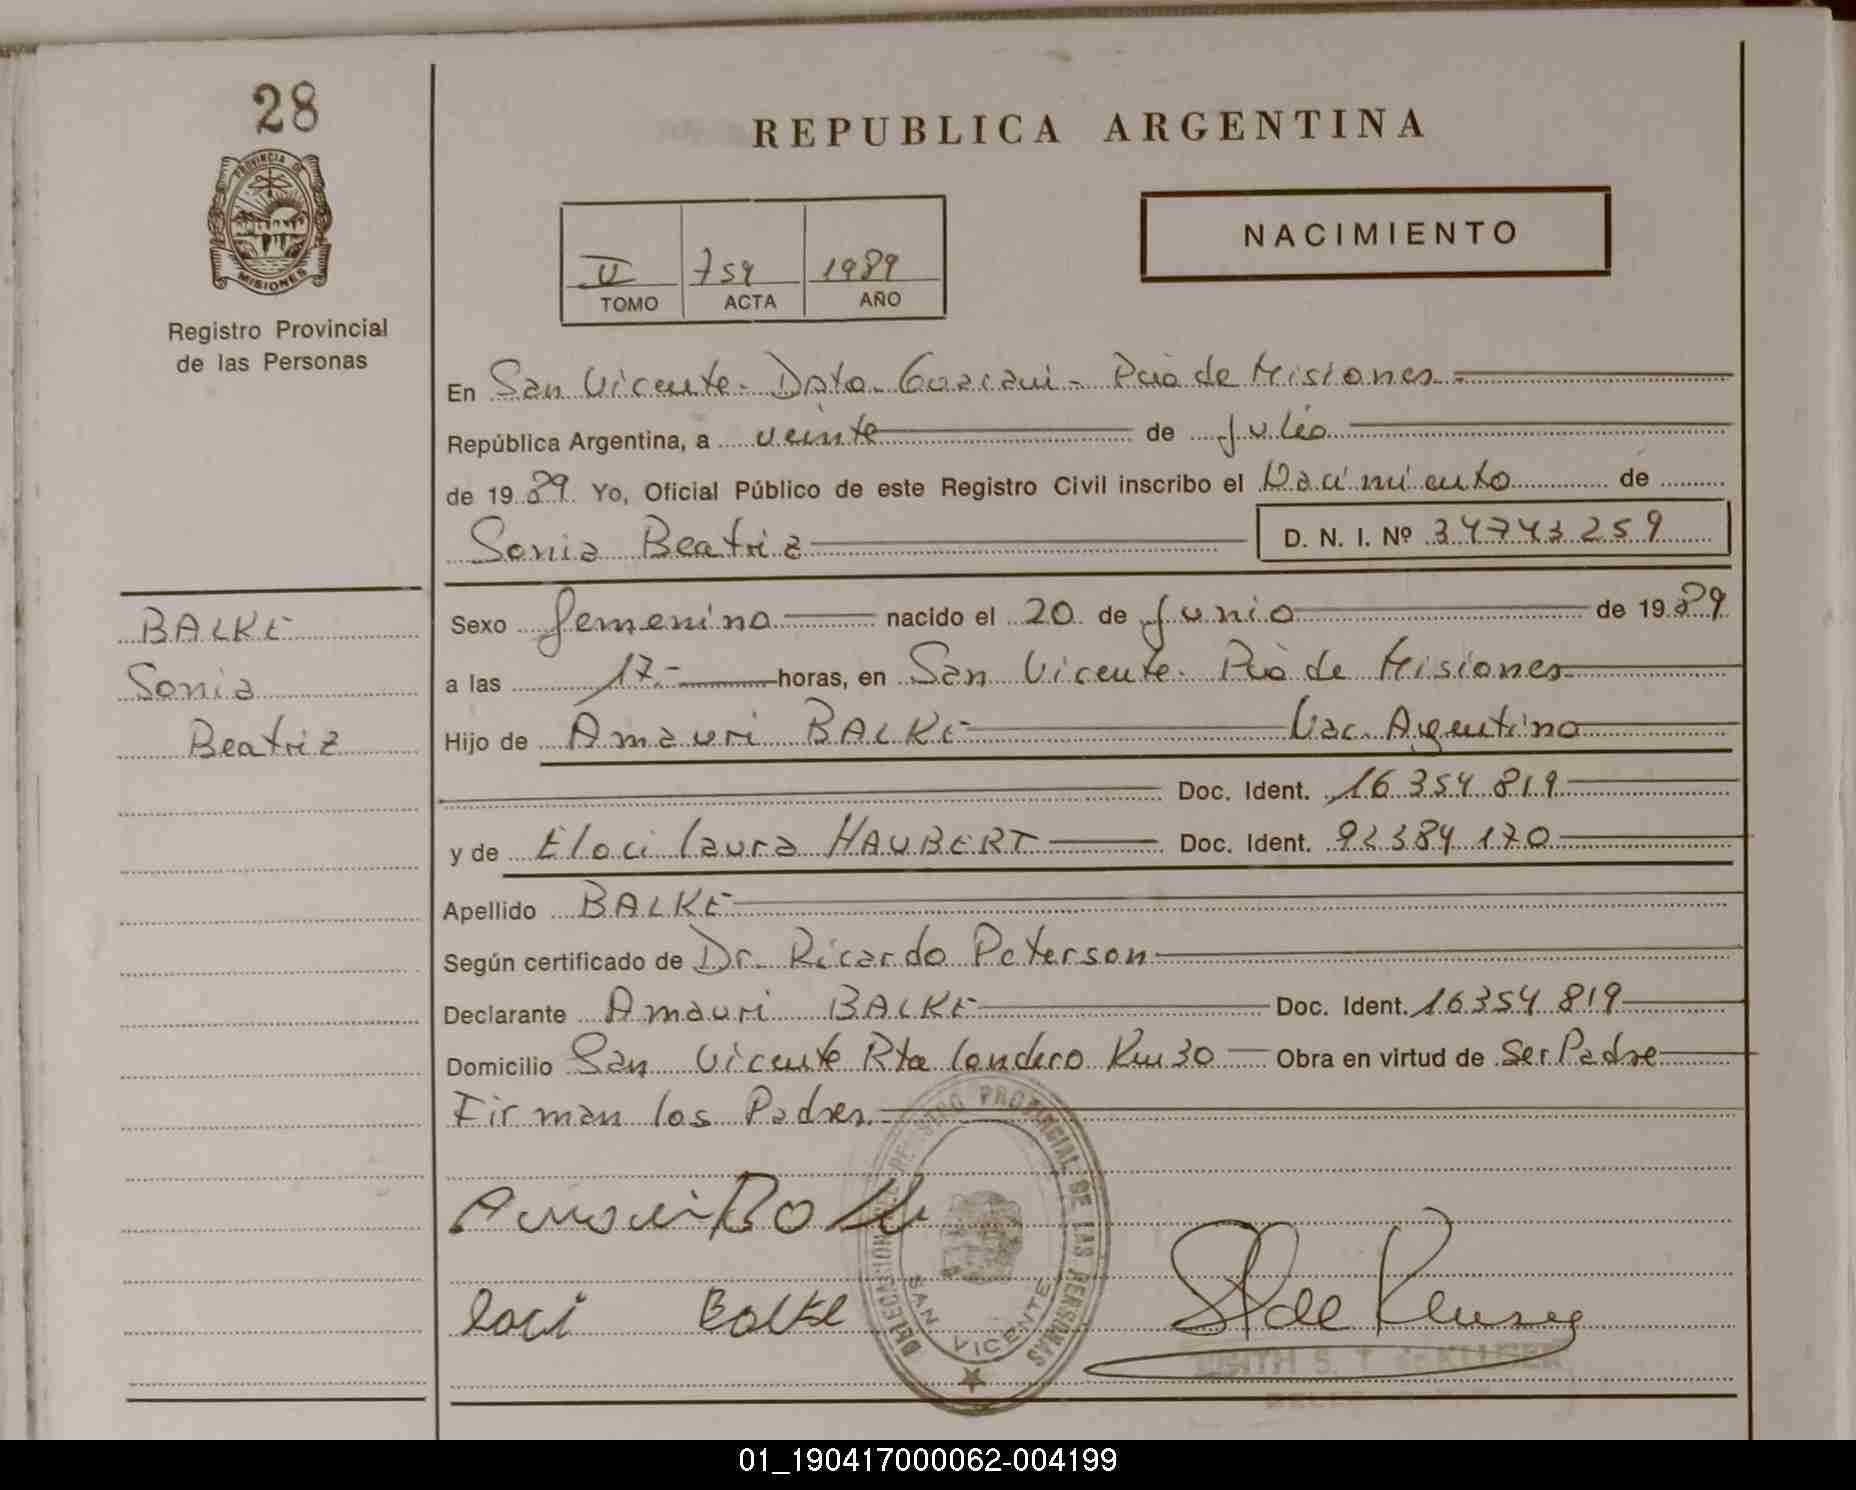 28
PROVINCIA DE
MISIONES
Registro Provincial
de las Personas
BALKE
Sonia
Beatriz
REPUBLICA ARGENTINA
II 759 1989
TOMO ACTA AÑO
NACIMIENTO
En San Vicente - Dpto. Guarani - Pcia de Misiones
República Argentina, a veinte de Julio
de 1989 Yo, Oficial Público de este Registro Civil inscribo el Nacimiento de
Sonia Beatriz D. N. I. Nº 34743259
Sexo femenino nacido el 20 de Junio de 1989
a las 17.- horas, en San Vicente - Pcia de Misiones
Hijo de Amauri BALKE Nac. Argentino
Doc. Ident. 16 354 819
y de Eloci Laura HAUBERT Doc. Ident. 92384170
Apellido BALKE
Según certificado de Dr. Ricardo Peterson
Declarante Amauri BALKE Doc. Ident. 16354 819
Domicilio San Vicente Rta Londero Km 30 Obra en virtud de Ser Padre
Firman los Padres
Amauri Balke
Loci Balke
REGISTRO PROVINCIAL DE LAS PERSONAS
SAN VICENTE
S. T. de KLUSER
01_190417000062-004199